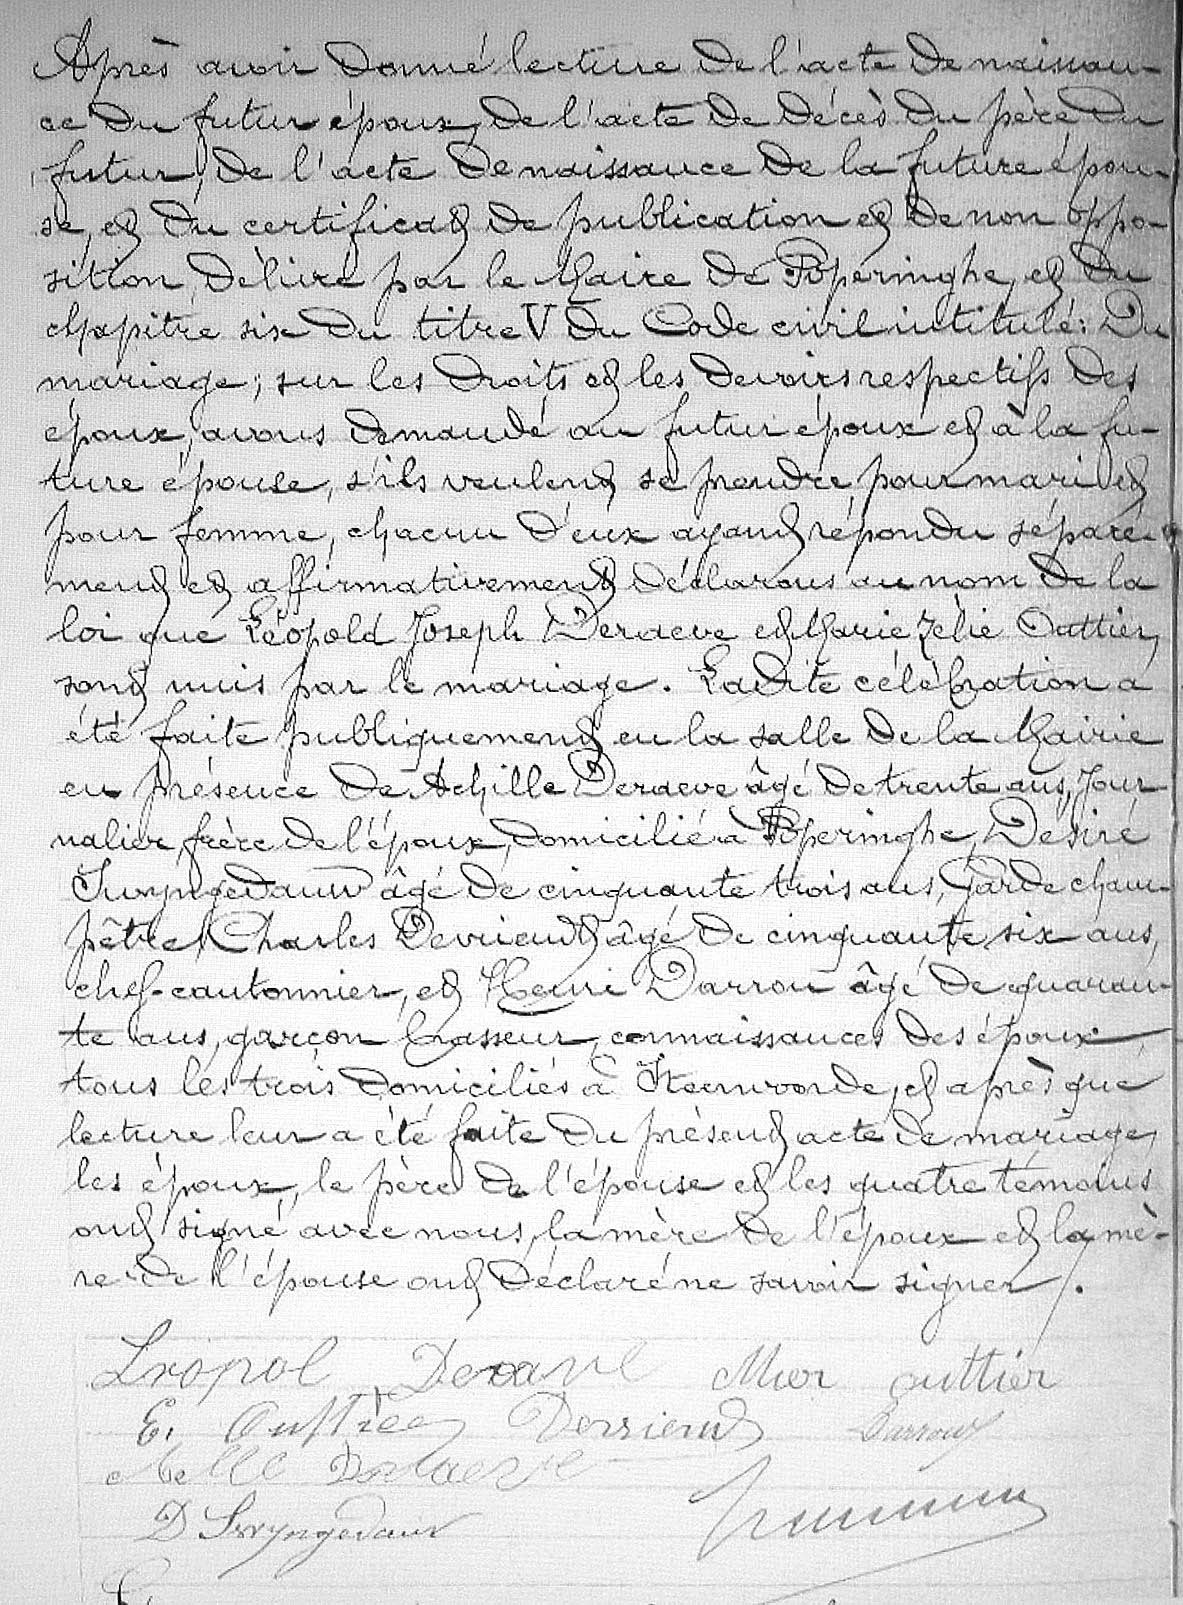 Après avoir donné lecture de l'acte de naissan-
ce du futur époux, de l'acte de décès du père du
futur, de l'acte de naissance de la future épou-
se, et du certificat de publication et de non oppo-
sition, délivré par le Maire de Poperinghe, et du
chapitre six du titre V du Code civil intitulé: Du
mariage; sur les droits et les devoirs respectifs des
époux, avons demandé au futur époux et à la fu-
ture épouse, s'ils veulent se prendre pour mari et
pour femme, chacun d'eux ayant répondu séparé-
ment et affirmativement déclarons au nom de la
loi que Léopold Joseph Deraeve et Marie Zélie Outtier,
sont unis par le mariage. Ladite célébration a
été faite publiquement en la salle de la Mairie
en présence de Achille Deraeve âgé de trente ans, Jour
nalier, frère de l'époux, domicilié à Poperinghe, Désiré
Swyngedauw âgé de cinquante trois ans, Garde cham-
pêtre, Charles Devriendt âgé de cinquante six ans,
chef-cantonnier, et Henri Darrou âgé de quaran-
te ans, garçon brasseur, connaissances des époux,
tous les trois domiciliés à Steenvorde, et après que
lecture leur a été faite du présent acte de mariage,
les époux, le père de l'épouse et les quatre témoins
ont signé avec nous, la mère de l'époux et la mè-
re de l'épouse ont déclaré ne savoir signer.
Leopol Deraeve Mier outtier
E. Outtier Devriendt Darrou
Deraeve
D Swyngedauw